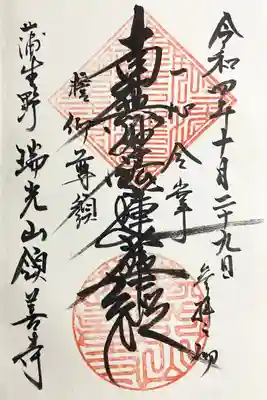 令和四年十月二十九日
参拝之砌
一心合掌
南無妙法蓮華経
瞻仰尊顔
蒲生野 瑞光山領善寺